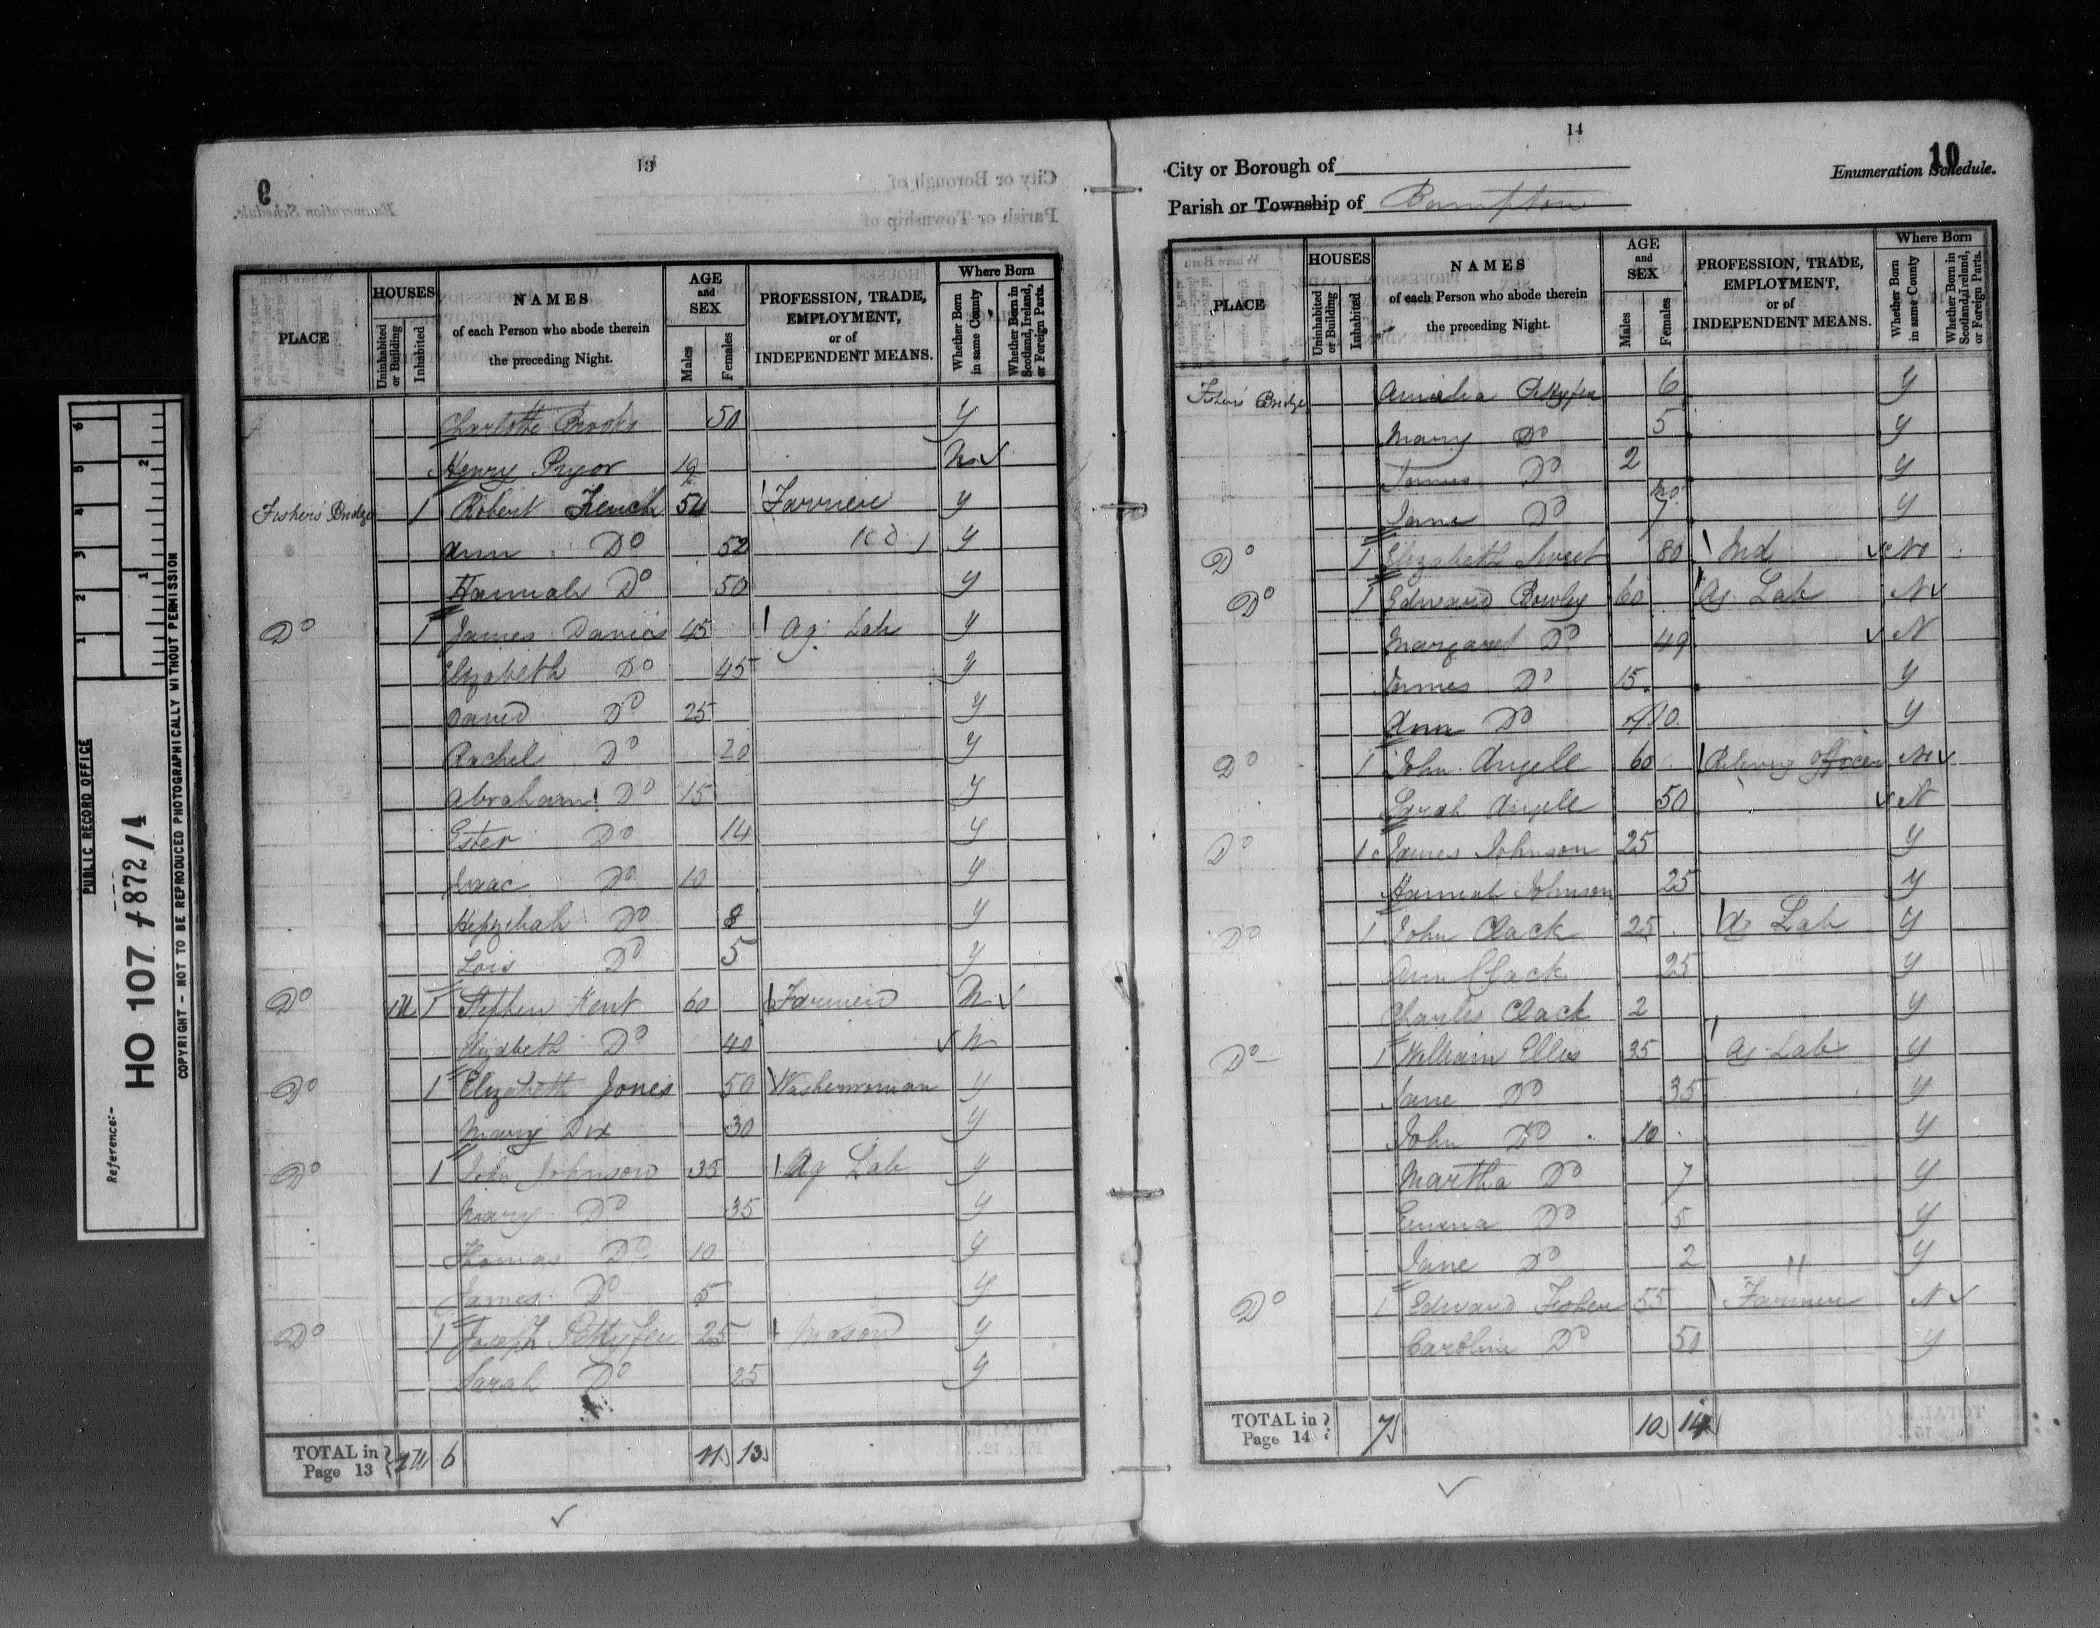 6 5 4 3 2 1
2 1
PUBLIC RECORD OFFICE
Reference:-
HO 107 / 872/4
COPYRIGHT - NOT TO BE REPRODUCED PHOTOGRAPHICALLY WITHOUT PERMISSION
13
9
PLACE
HOUSES
Uninhabited or Building
Inhabited
NAMES
of each Person who abode therein
the preceding Night.
AGE and SEX
Males
Females
PROFESSION, TRADE,
EMPLOYMENT,
or of
INDEPENDENT MEANS.
Where Born
Whether Born in same County
Whether Born in Scotland, Ireland, or Foreign Parts.
Charlotte Brooks 50 y
Henry Pryor N
Fishers Bridge 1 Robert Kench y
Ann Do 52 y
Hannah Do 50 y
Do 1 James Davies 45 Ag: Lab y
Elizabeth Do 45 y
David Do 25 y
Rachel Do 20 y
Abraham Do 15 y
Ester Do 14 y
Isaac Do 10 y
Hepzibah Do 8 y
Lois Do 5 y
Do 1 Stephen Kent 60 Farmer N
Elizabeth Do 40 N
Do 1 Elizabeth Jones 50 Washerwoman y
Mary Dix 30 y
Do 1 John Johnson 35 Ag Lab y
Mary Do 35 y
Thomas Do 10 y
James Do 5 y
Do 1 Joseph Pettyfer 25 Mason y
Sarah Do 25 y
TOTAL in Page 13 6 11 13
14
10
City or Borough of
Enumeration Schedule.
Parish or Township of Bampton
PLACE
HOUSES
Uninhabited or Building
Inhabited
NAMES
of each Person who abode therein
the preceding Night.
AGE and SEX
Males
Females
PROFESSION, TRADE,
EMPLOYMENT,
or of
INDEPENDENT MEANS.
Where Born
Whether Born in same County
Whether Born in Scotland, Ireland, or Foreign Parts.
Fishers Bridge Amelia Pettyfer 6 y
Mary Do 5 y
James Do 2 y
Jane Do 7 mo y
Do 1 Elizabeth Sweet 80 Ind No
Do 1 Edward Bowley 60 Ag Lab N
Margaret Do 49 N
James Do 15 y
Ann Do 10 y
Do 1 John Angell 60 Relieving Officer No
Sarah Angell 50 N
Do 1 James Johnson 25 y
Hannah Johnson 25 y
Do 1 John Clack 25 Ag Lab y
Ann Clack 25 y
Charles Clack 2 y
Do 1 William Ellis 35 Ag Lab y
Jane Do 35 y
John Do 10 y
Martha Do 7 y
Emma Do 5 y
Jane Do 2 " y
Do 1 Edward Fisher 55 Farmer N
Caroline Do 50 y
TOTAL in Page 14 7 10 14